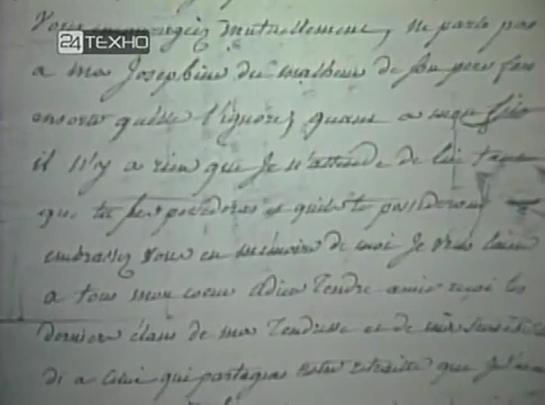 24 ТЕХНО
Vous encouragiez mutuellement, ne parle pas
a ma Josephine du malheur de son pere fais
ensorte qu'elle l'ignore, quant a mon fils
il n'y a rien que Je n'attende de lui tant
que tu les possederas et qu'ils te possederont
embrassez vous en mémoire de moi Je vous laisse
a tous mon coeur adieu tendre amie reçoi les
derniers élans de ma tendresse et de
di a ceux qui partagent votre retraite que Je